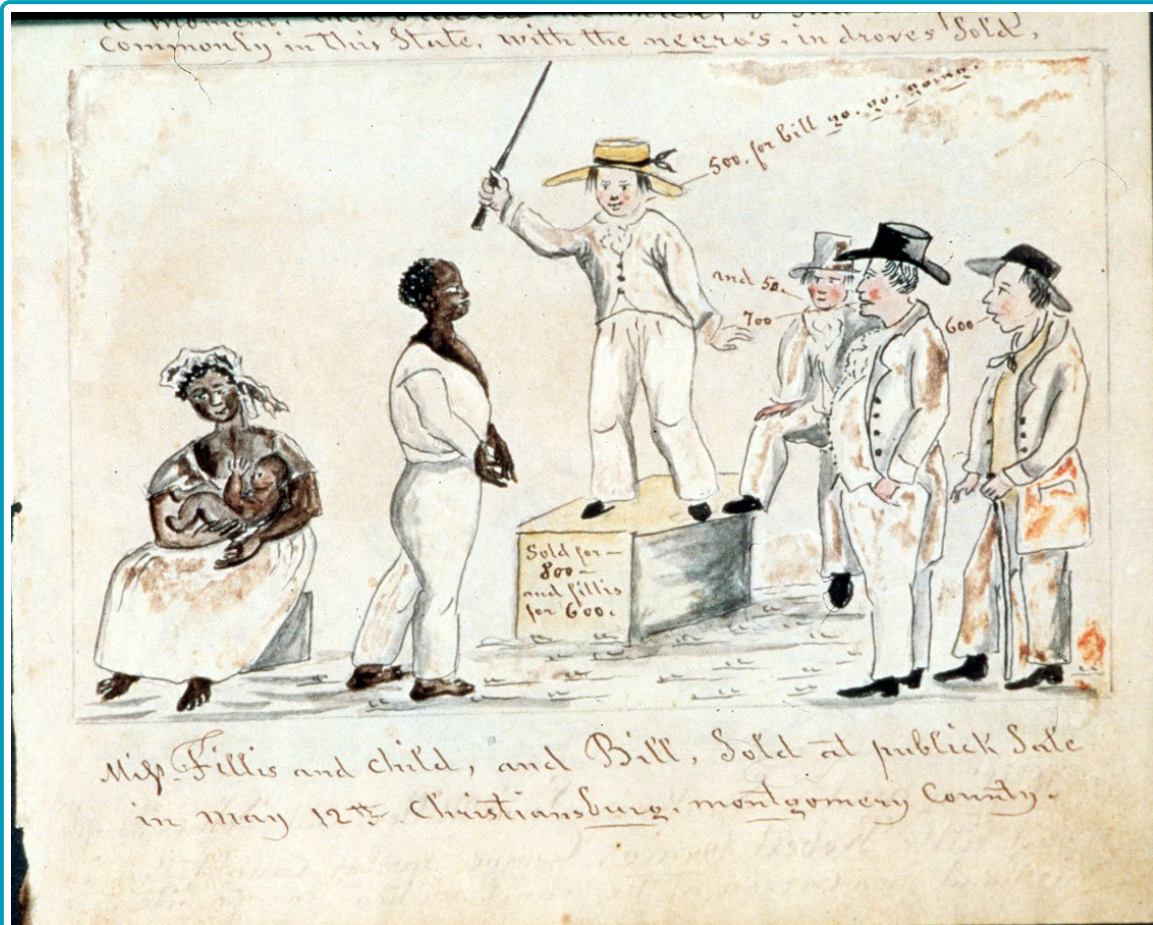 Commonly in this State, with the negro's, in droves Sold,
500. for bill go. go. going.
and 50.
700
600
Sold for—
800—
and fillis
for 600.
Miss Fillis and child, and Bill, Sold at publick Sale
in May 12th Christiansburg. montgomery County.